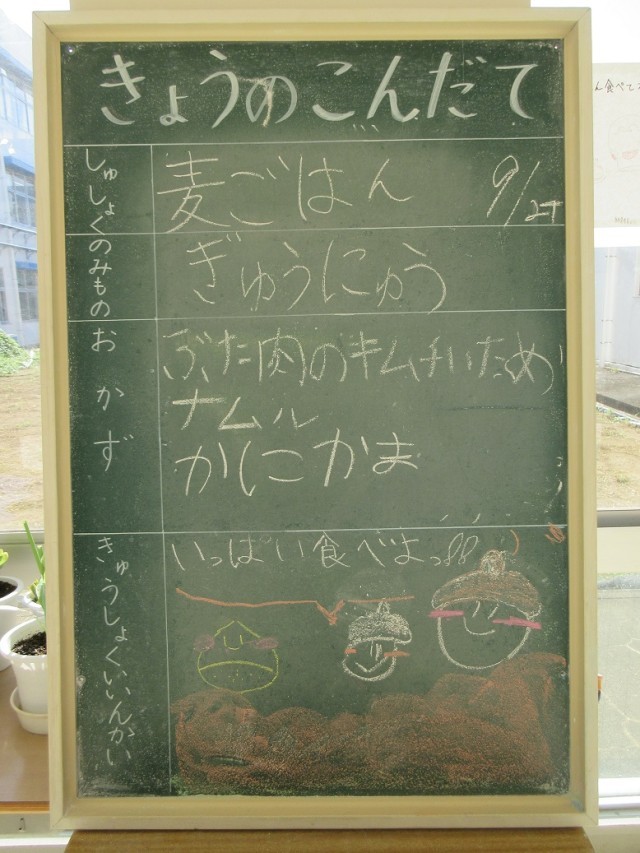 きょうのこんだて
しゅしょく
麦ごはん
9/27
のみもの
ぎゅうにゅう
おかず
ぶた肉のキムチいため
ナムル
かにかま
きゅうしょくいいんかい
いっぱい食べよっ!!
ん食べて